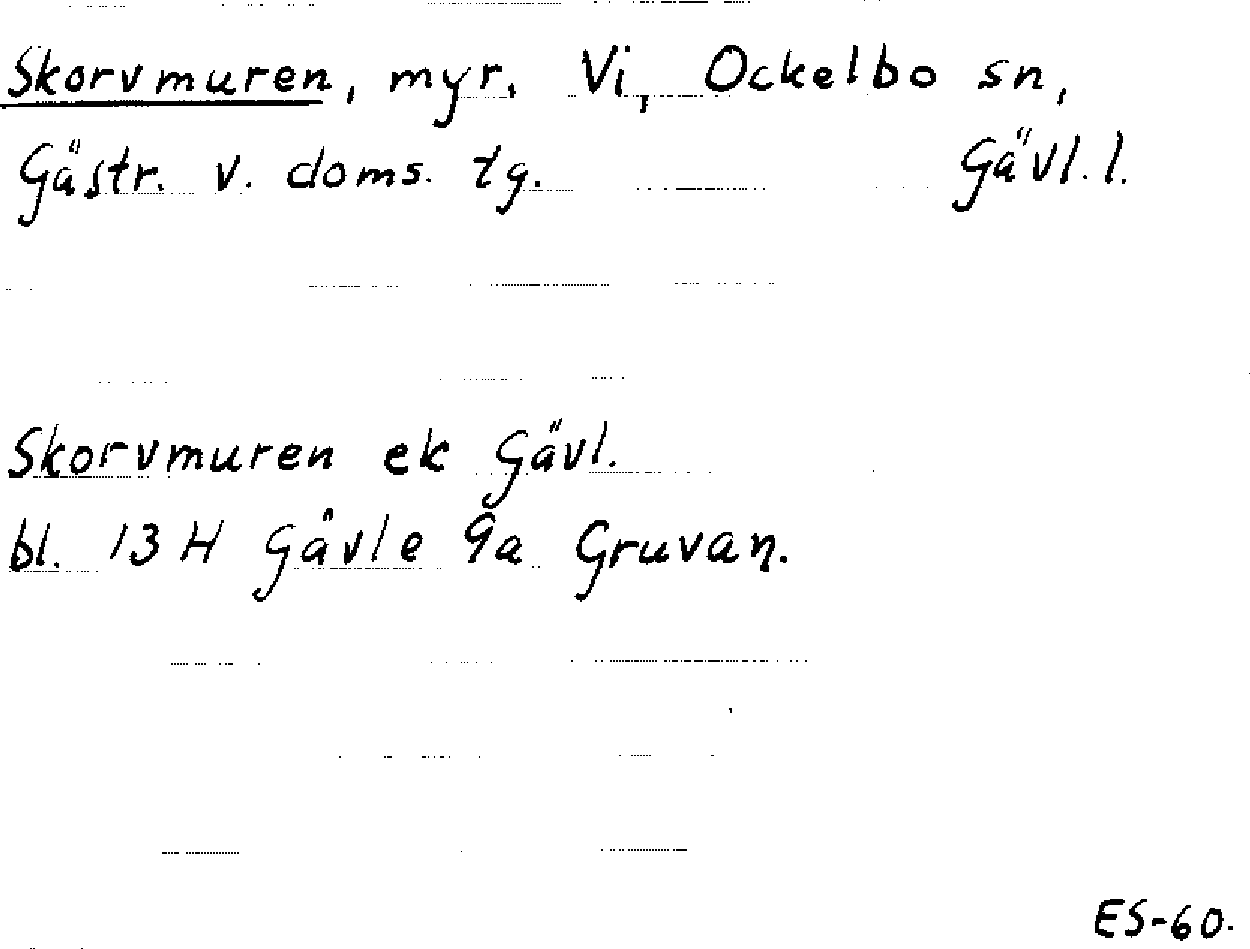 Skorvmuren, myr. Vi, Ockelbo sn,
Gästr. v. doms. tg. Gävl. l.
Skorvmuren ek Gävl.
bl. 13 H Gävle 9a Gruvan.
ES-60.